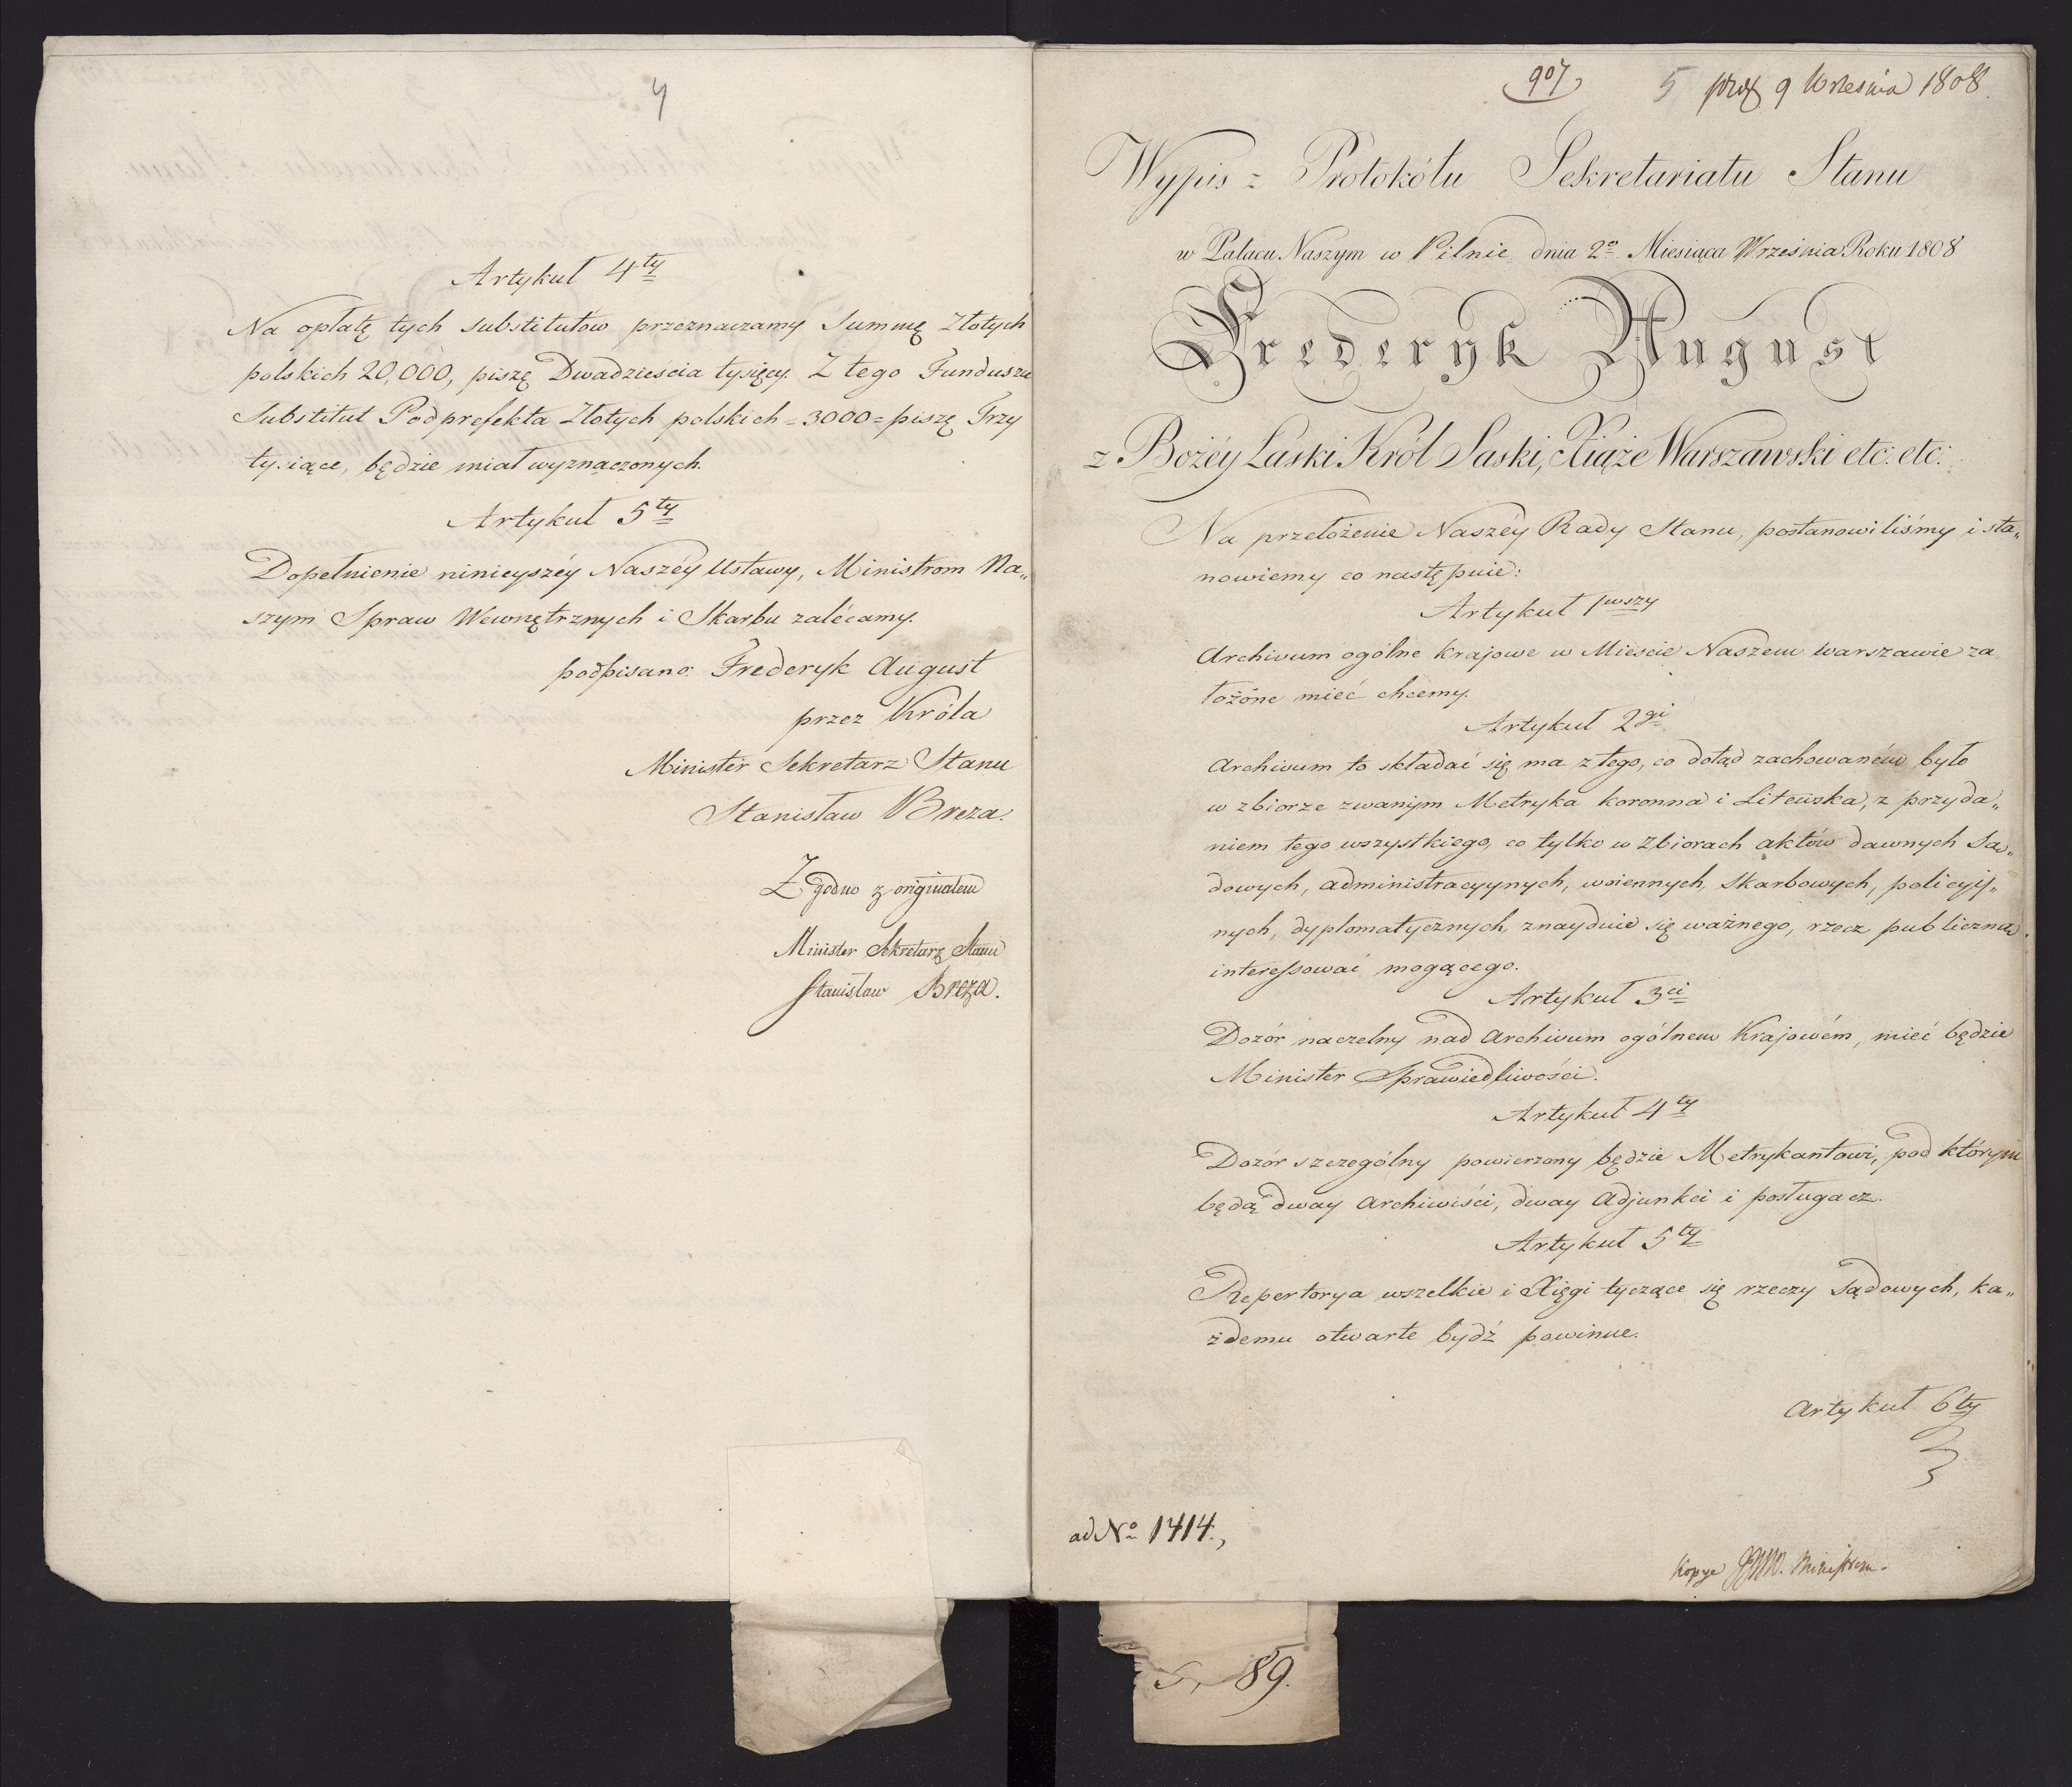 4
Artykuł 4ty
Na opłatę tych substitutow przeznaczamy Summę Złotych
polskich 20,000, piszę Dwadzieścia tysięcy. Z tego Funduszu
Substitut Podprefekta Złotych polskich = 3000 = piszę Trzy
tysiące, będzie miał wyznaczonych.
Artykuł 5ty
Dopełnienie ninieyszéy Naszéy Ustawy, Ministrom Na„
szym Spraw Wewnętrznych i Skarbu zalécamy.
podpisano: Frederyk August
przez Króla
Minister Sekretarz Stanu
Stanisław Breza.
Zgodno z originałem
Minister Sekretarz Stanu
Stanisław Breza.
907
5 9 Września 1808.
Wypis z Protokółu Sekretariatu Stanu
w Pałacu Naszym w Pilnic dnia 2o Miesiąca Września Roku 1808
Frederyk August
z Bożéy Łaski Król Saski, Xiąże Warszawski etc: etc:
Na przełożenie Naszéy Rady Stanu, postanowiliśmy i sta„
nowiemy co następuie:
Artykuł 1wszy
Archivum ogólne krajowe w Mieście Naszem Warszawie za
łożóne mieć chcemy.
Artykuł 2gi
Archivum to składać się ma z tego, co dotąd zachowaném było
w zbiorze zwanym Metryka koronna i Litewska, z przyda„
niem tego wszystkiego, co tylko w zbiorach aktów dawnych Są„
dowych, administracyynych, woiennych, skarbowych, policyy„
nych, dyplomatycznych, znayduie się ważnego, rzecz publiczną
interessować mogącego.
Artykuł 3ci
Dozór naczelny nad Archivum ogólnem Krajowém, mieć będzie
Minister Sprawiedliwości.
Artykuł 4ty
Dozór szczególny powierzony będzie Metrykantowi, pod którym
będą dway Archiwiści, dway Adjunkci i posługacz.
Artykuł 5ty
Repertorya wszelkie i Xięgi tyczące się rzeczy Sądowych, ka„
żdemu otwarte bydź powinne.
Artykuł 6ty
ad No 1414.,
Kopye JWW. Ministrom.
89.